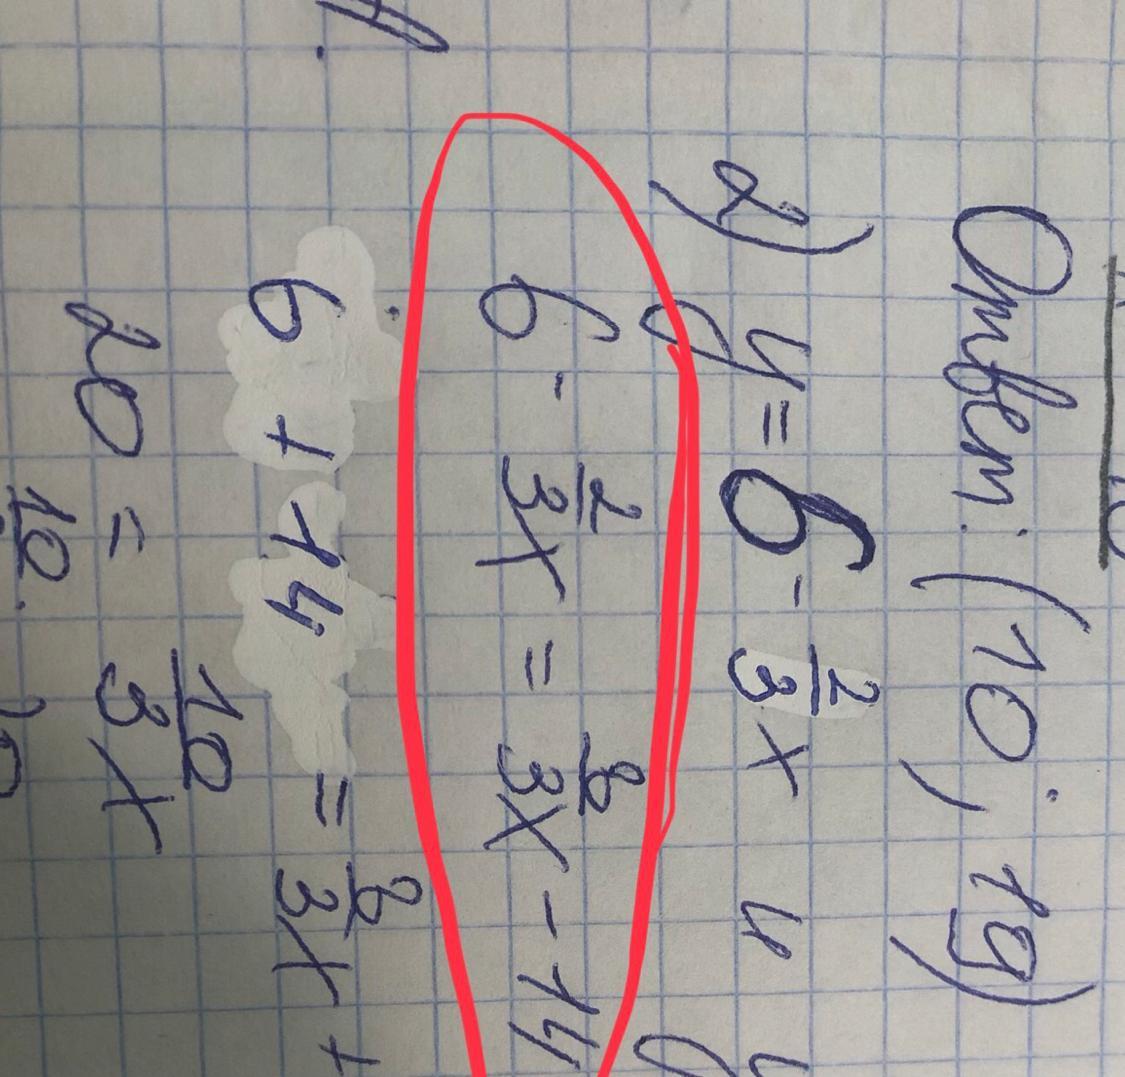 Ответ: (10; 19)
2) y = 6 - 2/3 x и y
6 - 2/3 x = 8/3 x - 14
6 + 14 = 8/3 x +
20 = 10/3 x